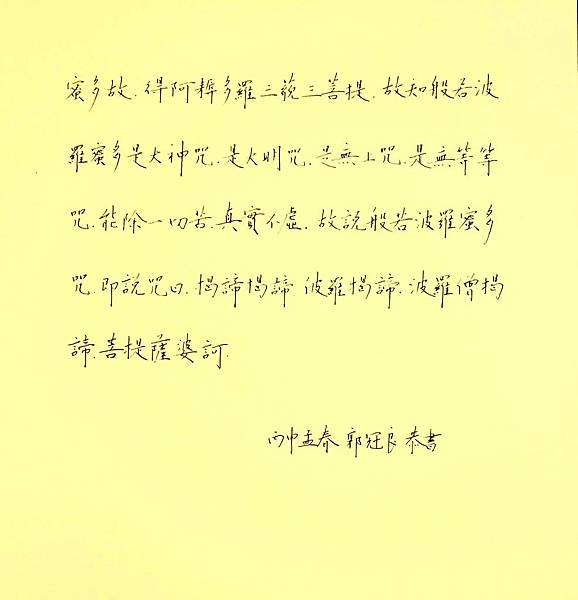 蜜多故.得阿耨多羅三藐三菩提.故知般若波
羅蜜多是大神咒.是大明咒.是無上咒.是無等等
咒.能除一切苦.真實不虛.故說般若波羅蜜多
咒.即說咒曰.揭諦揭諦.波羅揭諦.波羅僧揭
諦.菩提薩婆訶.
丙申孟春 郭冠良 恭書